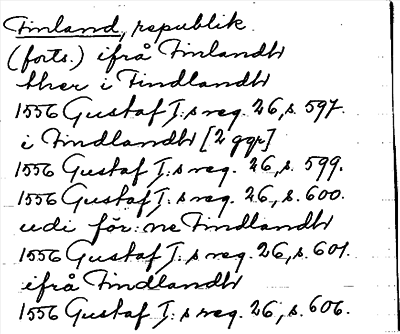 Finland, republik
(forts.) ifrå Finlandh
ther i Findlandh
1556 Gustaf I:s reg. 26, s. 597.
i Findlandh [2 ggr]
1556 Gustaf I:s reg. 26, s. 599.
1556 Gustaf I:s reg. 26, s. 600.
udi för:ne Findlandh
1556 Gustaf I:s reg. 26, s. 601.
ifrå Findlandh
1556 Gustaf I:s reg. 26, s. 606.